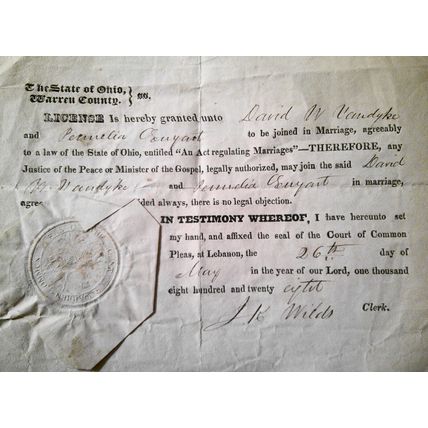 The State of Ohio,
Warren County. } ss.
LICENSE Is hereby granted unto David W Vandyke
and Permelia Conyart to be joined in Marriage, agreeably
to a law of the State of Ohio, entitled "An Act regulating Marriages"—THEREFORE, any
Justice of the Peace or Minister of the Gospel, legally authorized, may join the said David
W. Vandyke and Permelia Conyart in marriage,
agree ided always, there is no legal objection.
IN TESTIMONY WHEREOF, I have hereunto set
my hand, and affixed the seal of the Court of Common
Pleas, at Lebanon, the 26th day of
May in the year of our Lord, one thousand
eight hundred and twenty eight
J K Wilds Clerk.